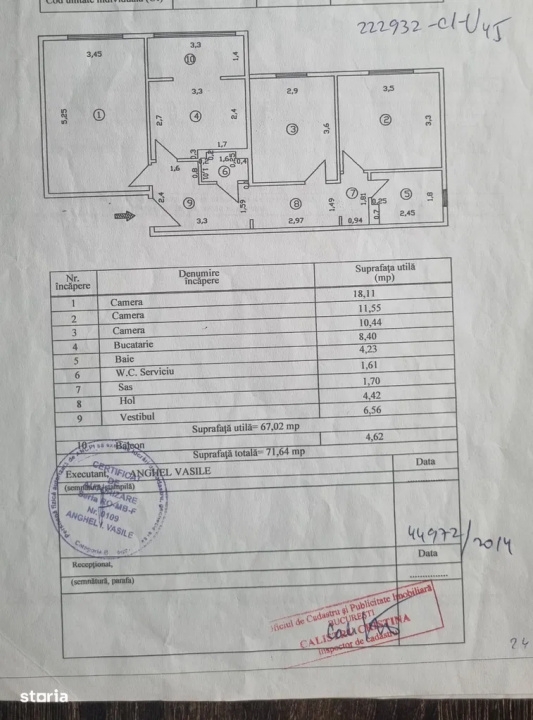 222932-C1-U45
3,45
3,3
10
1,4
3,3
5,25
1
2,7
4
2,4
2,9
3
3,6
3,5
2
3,3
1,7
1,6
6
0,4
0,8
2,4
9
3,3
1,59
8
2,97
1,49
7
1,81
0,94
0,7
5
2,45
1,8
Nr. încăpere
Denumire încăpere
Suprafaţa utilă (mp)
1 Camera 18,11
2 Camera 11,55
3 Camera 10,44
4 Bucatarie 8,40
5 Baie 4,23
6 W.C. Serviciu 1,61
7 Sas 1,70
8 Hol 4,42
9 Vestibul 6,56
Suprafaţă utilă= 67,02 mp
10 Balcon 4,62
Suprafaţă totală= 71,64 mp
Executant, ANGHEL VASILE
Data
(semnătura, ştampilă)
CERTIFICAT
DE
AUTORIZARE
Seria RO-MB-F
Nr. 0109
ANGHEL I. VASILE
44972/2014
Data
Recepţionat,
(semnătură, parafa)
Oficiul de Cadastru şi Publicitate Imobiliară
BUCUREŞTI
CRISTINA
Inspector de cadastru
24
storia